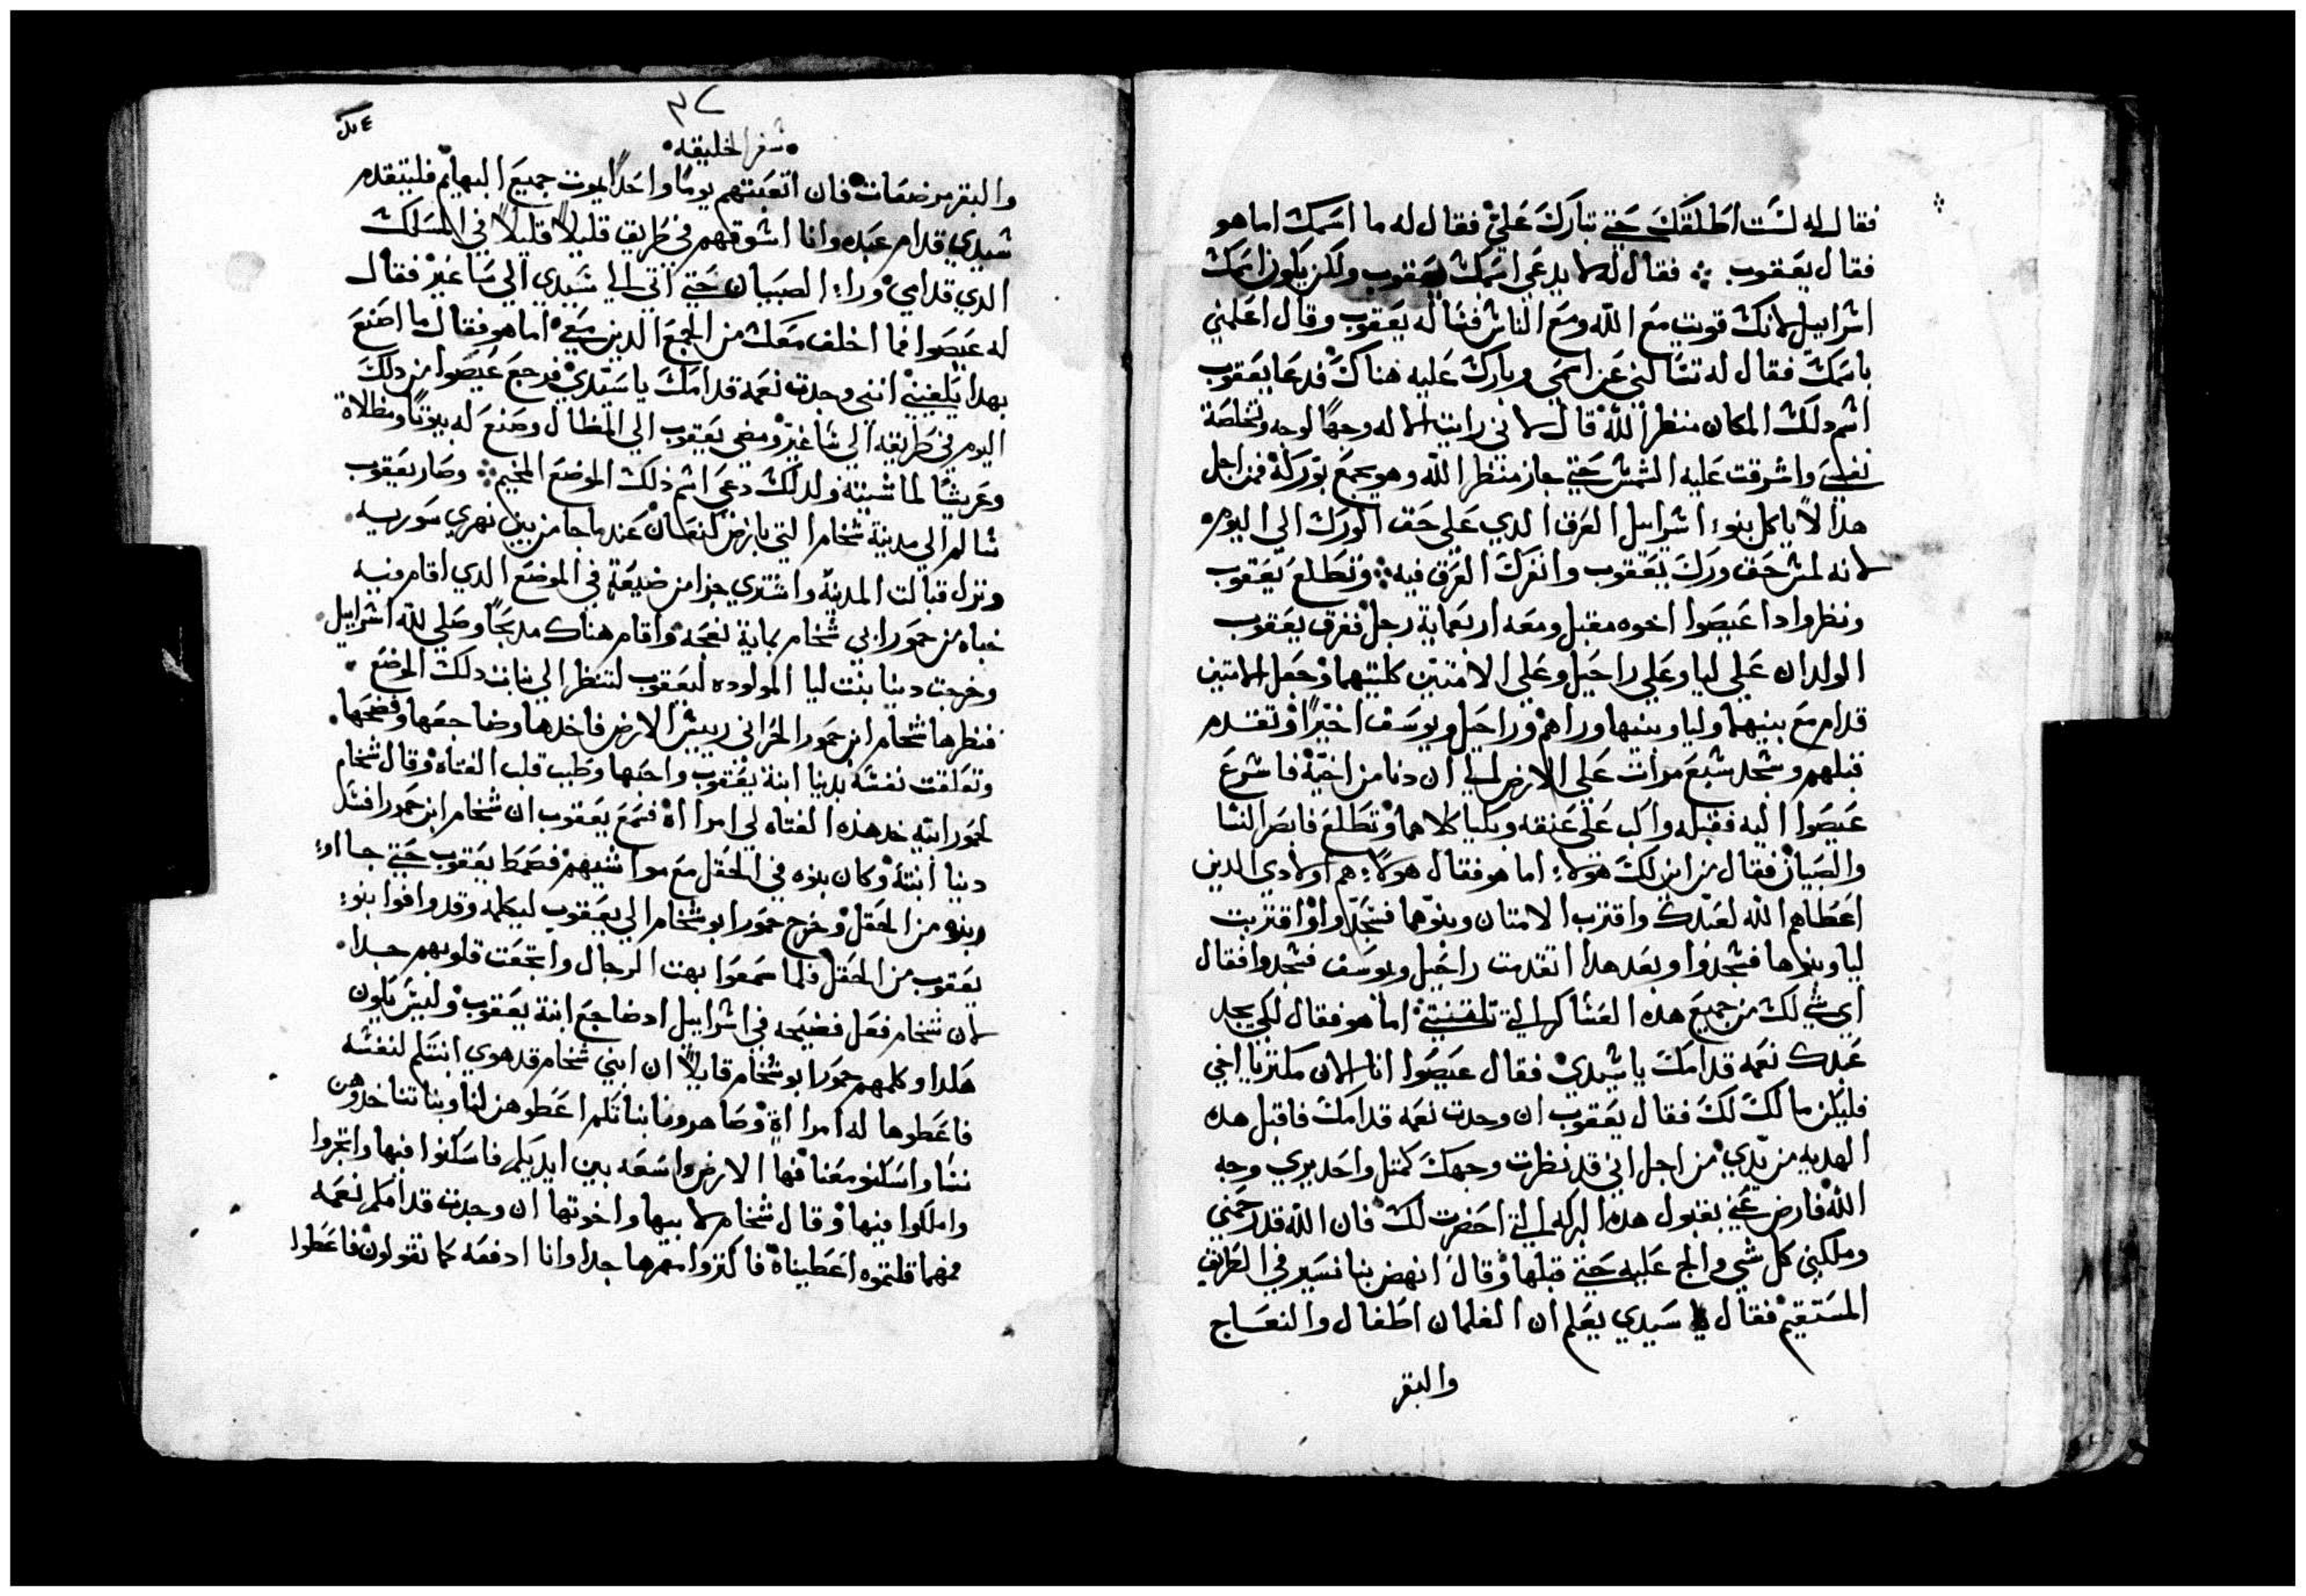 فقال له لست اطلقك حتي تبارك علي فقال له ما اسمك اما هو
فقال يعقوب ⁘ فقال له لا يدعي اسمك يعقوب ولكن يكون اسمك
اسراييل لانك قويت مع الله ومع الناس فساله يعقوب وقال اعلمني
باسمك فقال له تسالني عن اسمي وبارك عليه هناك فدعا يعقوب
اسم دلك المكان منظر الله قال لاني رايت الاله وجهًا لوجه وتخلصة
نفسي واشرقت عليه الشمس حتي جاز منظر الله وهو يجمع بوركه فمن اجل
هذا لا ياكل بنوا اسراييل العرق الدي علي حق الورك الي اليوم
لانه لمس حق ورك يعقوب وانفرك العرق فيه ⁘ وتطلع يعقوب
ونظر وادا عيصوا اخوه مقبل ومعه اربعماية رجل ففرق يعقوب
الولدان علي ليا وعلي راحيل وعلي الامتين كلتيهما وجعل الامتين
قدام مع بنيهما وليا وبنيها وراهم وراحيل ويوسف اخيرًا وتقدم
قبلهم وسجد سبع مرات علي الارض الي ان دنا من اخيه فاسرع
عيصوا اليه فقبله واكب علي عنقه وبكيا كلاهما وتطلع فابصر النسا
والصبيان فقال من اين لك هولاء اما هو فقال هولاء هم اولادي الدين
اعطاهم الله لعبدك واقترب الامتان وبنوهما فسجدوا واقتربت
ليا وبنوها فسجدوا وبعد هدا اتقدمت راحيل ويوسف فسجدوا فقال
اي شي لك من جميع هده العساكر التي تلقتني اما هو فقال لكي يجد
عبدك نعمه قدامك يا سيدي فقال عيصوا انا الان مكتر يا اخي
فليكن مالك لك فقال يعقوب ان وجدت نعمه قدامك فاقبل هده
الهديه من يدي من اجل اني قد نظرت وجهك كمتل واحد يري وجه
الله فارض عني بقبول هده البركه التي احضرت لك فان الله قد رحمني
وملكني كل شي والج عليه حتي قبلها وقال انهض بنا نسير في الطريق
المستقيم فقال سيدي يعلم ان الغلمان اطفال والنعاج
والبقر
٣٤
سفر الخليقه
والبقر مرضعات فان اتعبتهم يومًا واحدًا يموت جميع البهايم فليتقدم
سيدي قدام عبده وانا اسوقهم في طريق قليلاً قليلاً في المسلك
الدي قدامي وراء الصبيان حتي اتي الي سيدي الي ساعير فقال
له عيصوا فما اخلف معك من الجمع الدين معي اما هو فقال ما اصنع
بهدا يكفيني انني وجدت نعمه قدامك يا سيدي فرجع عيصوا من دلك
اليوم في طريقه الي ساعير ومضي يعقوب الي المظال وصنع له بيوتًا ومظلاة
وعريشًا لماشيته ولدلك دعي اسم ذلك الموضع المخيم ⁘ وصار يعقوب
سالم الي مدينة شخام التي بارض كنعان عندما جا من بين نهري سوريه
ونزل قبالت المدينه واشتري جزا من ضيعة في الموضع الدي اقام فيه
خباه من حمورا ابي شخام بماية نعجه واقام هناك مدبحًا وصلي لله اسراييل
وخرجت دينا بنت ليا المولوده ليعقوب لتنظر الي بنات دلك الموضع
فنظرها شخام ابن حمورا الحراني رييس الارض فاخدها وضاجعها وفضحها
وتعلقت نفسه بدينا ابنة يعقوب واحبها وطيب قلب الفتاه وقال شخام
لحمورا ابيه خد هذه الفتاه لي امراأه فسمع يعقوب ان شخام ابن حمورا افسد
دينا ابنته وكان بنوه في الحقل مع مواشيهم فصمط يعقوب حتي جااوا
بنوه من الحقل وخرج حمورا ابو شخام الي يعقوب ليكلمه وقد وافوا بنوا
يعقوب من الحقل فلما سمعوا بهت الرجال واتجعت قلوبهم جدا
لان شخام فعل فضيحه في اسراييل اد ضاجع ابنة يعقوب وليس يكون
هكدا وكلمهم حمورا ابو شخام قايلاً ان ابني شخام قد هوي ابنتكم لنفسه
فاعطوها له امرااة وصاهرونا بناتكم اعطوهن لنا وبناتنا خدوهن
نسا واسكنو معنا فها الارض واسعه بين ايديكم فاسكنوا فيها واتجروا
واملكوا فيها وقال شخام لابيها واخوتها ان وجدت قدامكم نعمه
فمهما قلتموه اعطيناه فاكتروا مهرها جدا وانا ادفعه كما تقولون فاعطوا